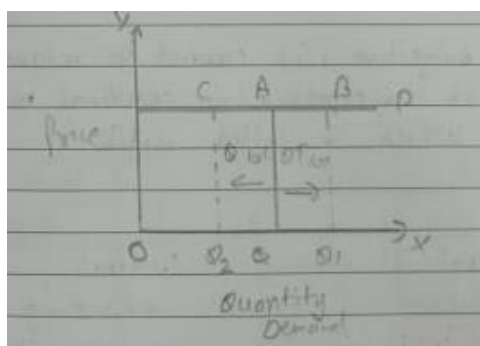 Y
C A B D
Price
O Q2 Q Q1 X
Quantity
Demand